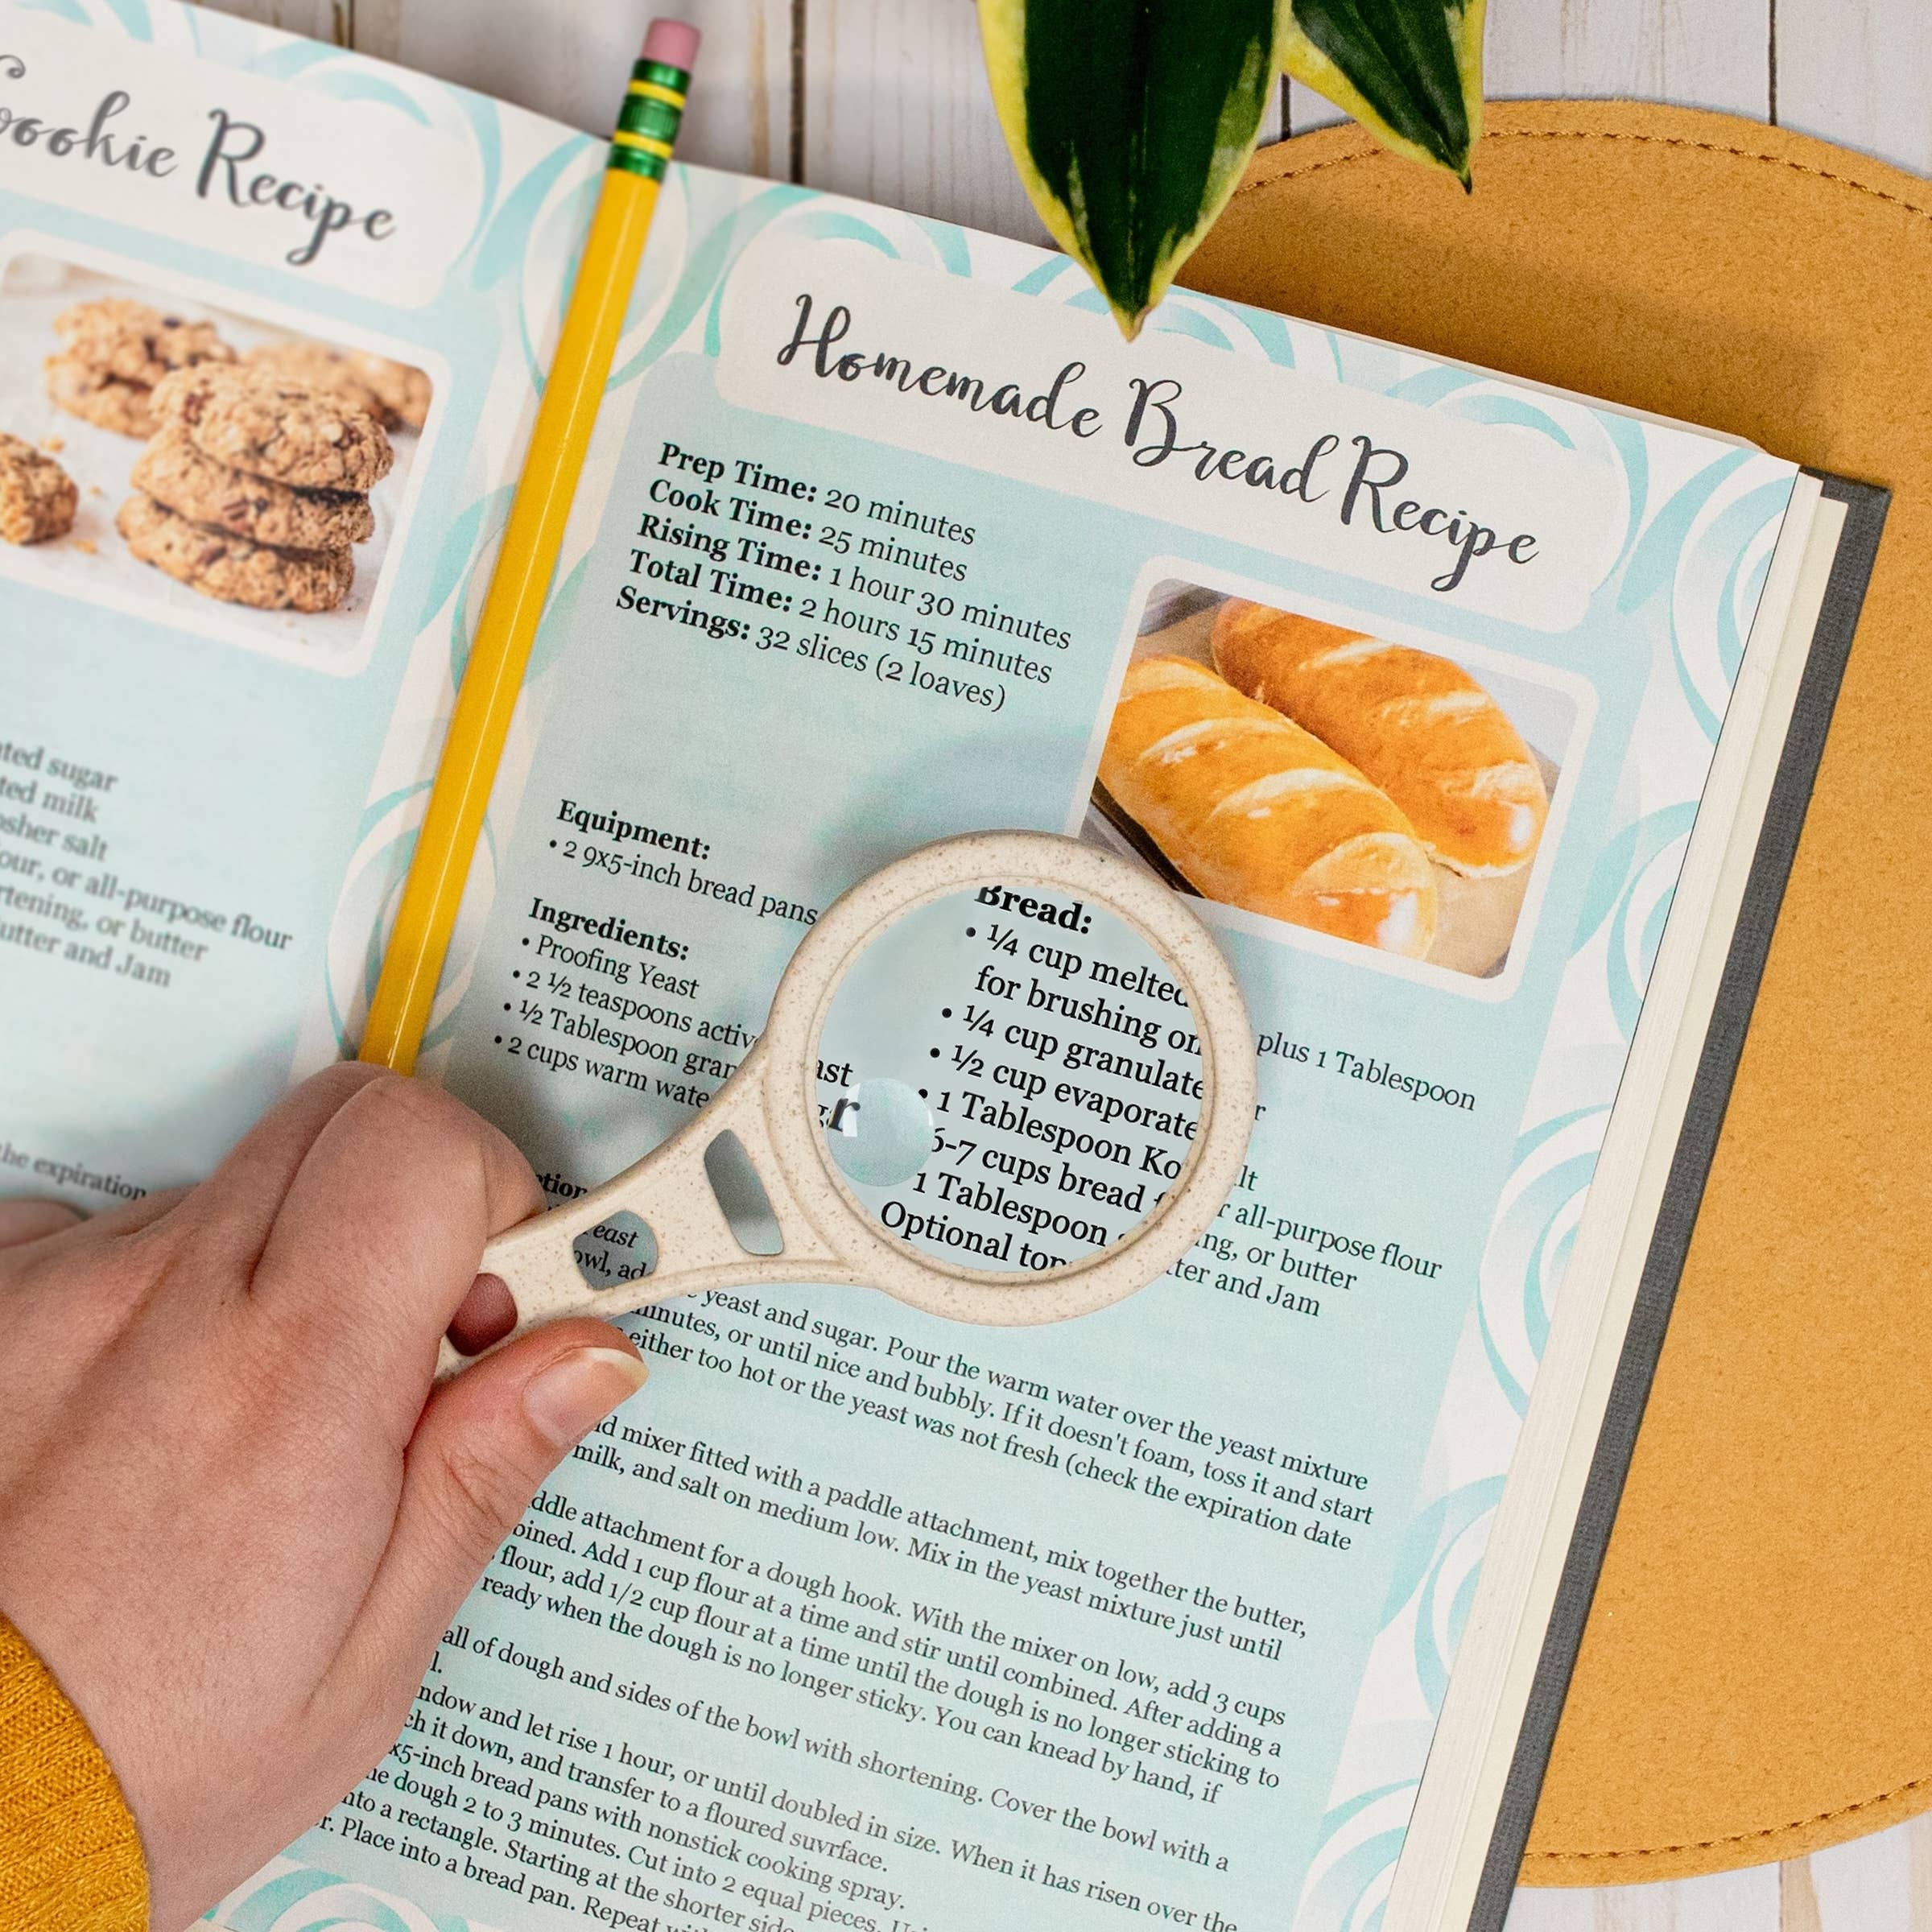 Cookie Recipe
sugar
milk
salt
or all-purpose flour
or butter
and Jam
the expiration
Homemade Bread Recipe
Prep Time: 20 minutes
Cook Time: 25 minutes
Rising Time: 1 hour 30 minutes
Total Time: 2 hours 15 minutes
Servings: 32 slices (2 loaves)
Equipment:
• 2 9x5-inch bread pans
Ingredients:
• Proofing Yeast
• 2 ½ teaspoons
• ½ Tablespoon
• 2 cups warm
Bread:
• ¼ cup melted plus 1 Tablespoon
for brushing on
• ¼ cup
• ½ cup
• 1 Tablespoon
6-7 cups bread or all-purpose flour
1 Tablespoon or butter
Optional and Jam
yeast and sugar. Pour the warm water over the yeast mixture
minutes, or until nice and bubbly. If it doesn't foam, toss it and start
either too hot or the yeast was not fresh (check the expiration date
mixer fitted with a paddle attachment, mix together the butter,
milk, and salt on medium low. Mix in the yeast mixture just until
attachment for a dough hook. With the mixer on low, add 3 cups
Add 1 cup flour at a time and stir until combined. After adding a
flour, add 1/2 cup flour at a time until the dough is no longer sticking to
ready when the dough is no longer sticky. You can knead by hand, if
all of dough and sides of the bowl with shortening. Cover the bowl with a
and let rise 1 hour, or until doubled in size. When it has risen over the
it down, and transfer to a floured suvrface.
bread pans with nonstick cooking spray.
dough 2 to 3 minutes. Cut into 2 equal pieces.
into a rectangle. Starting at the shorter
Place into a bread pan. Repeat